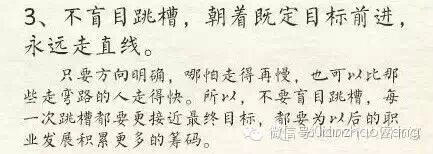 3、不盲目跳槽，朝着既定目标前进，
永远走直线。
只要方向明确，哪怕走得再慢，也可以比那
些走弯路的人走得快。所以，不要盲目跳槽，每
一次跳槽都要更接近最终目标，都要为以后的职
业发展积累更多的筹码。
微信号